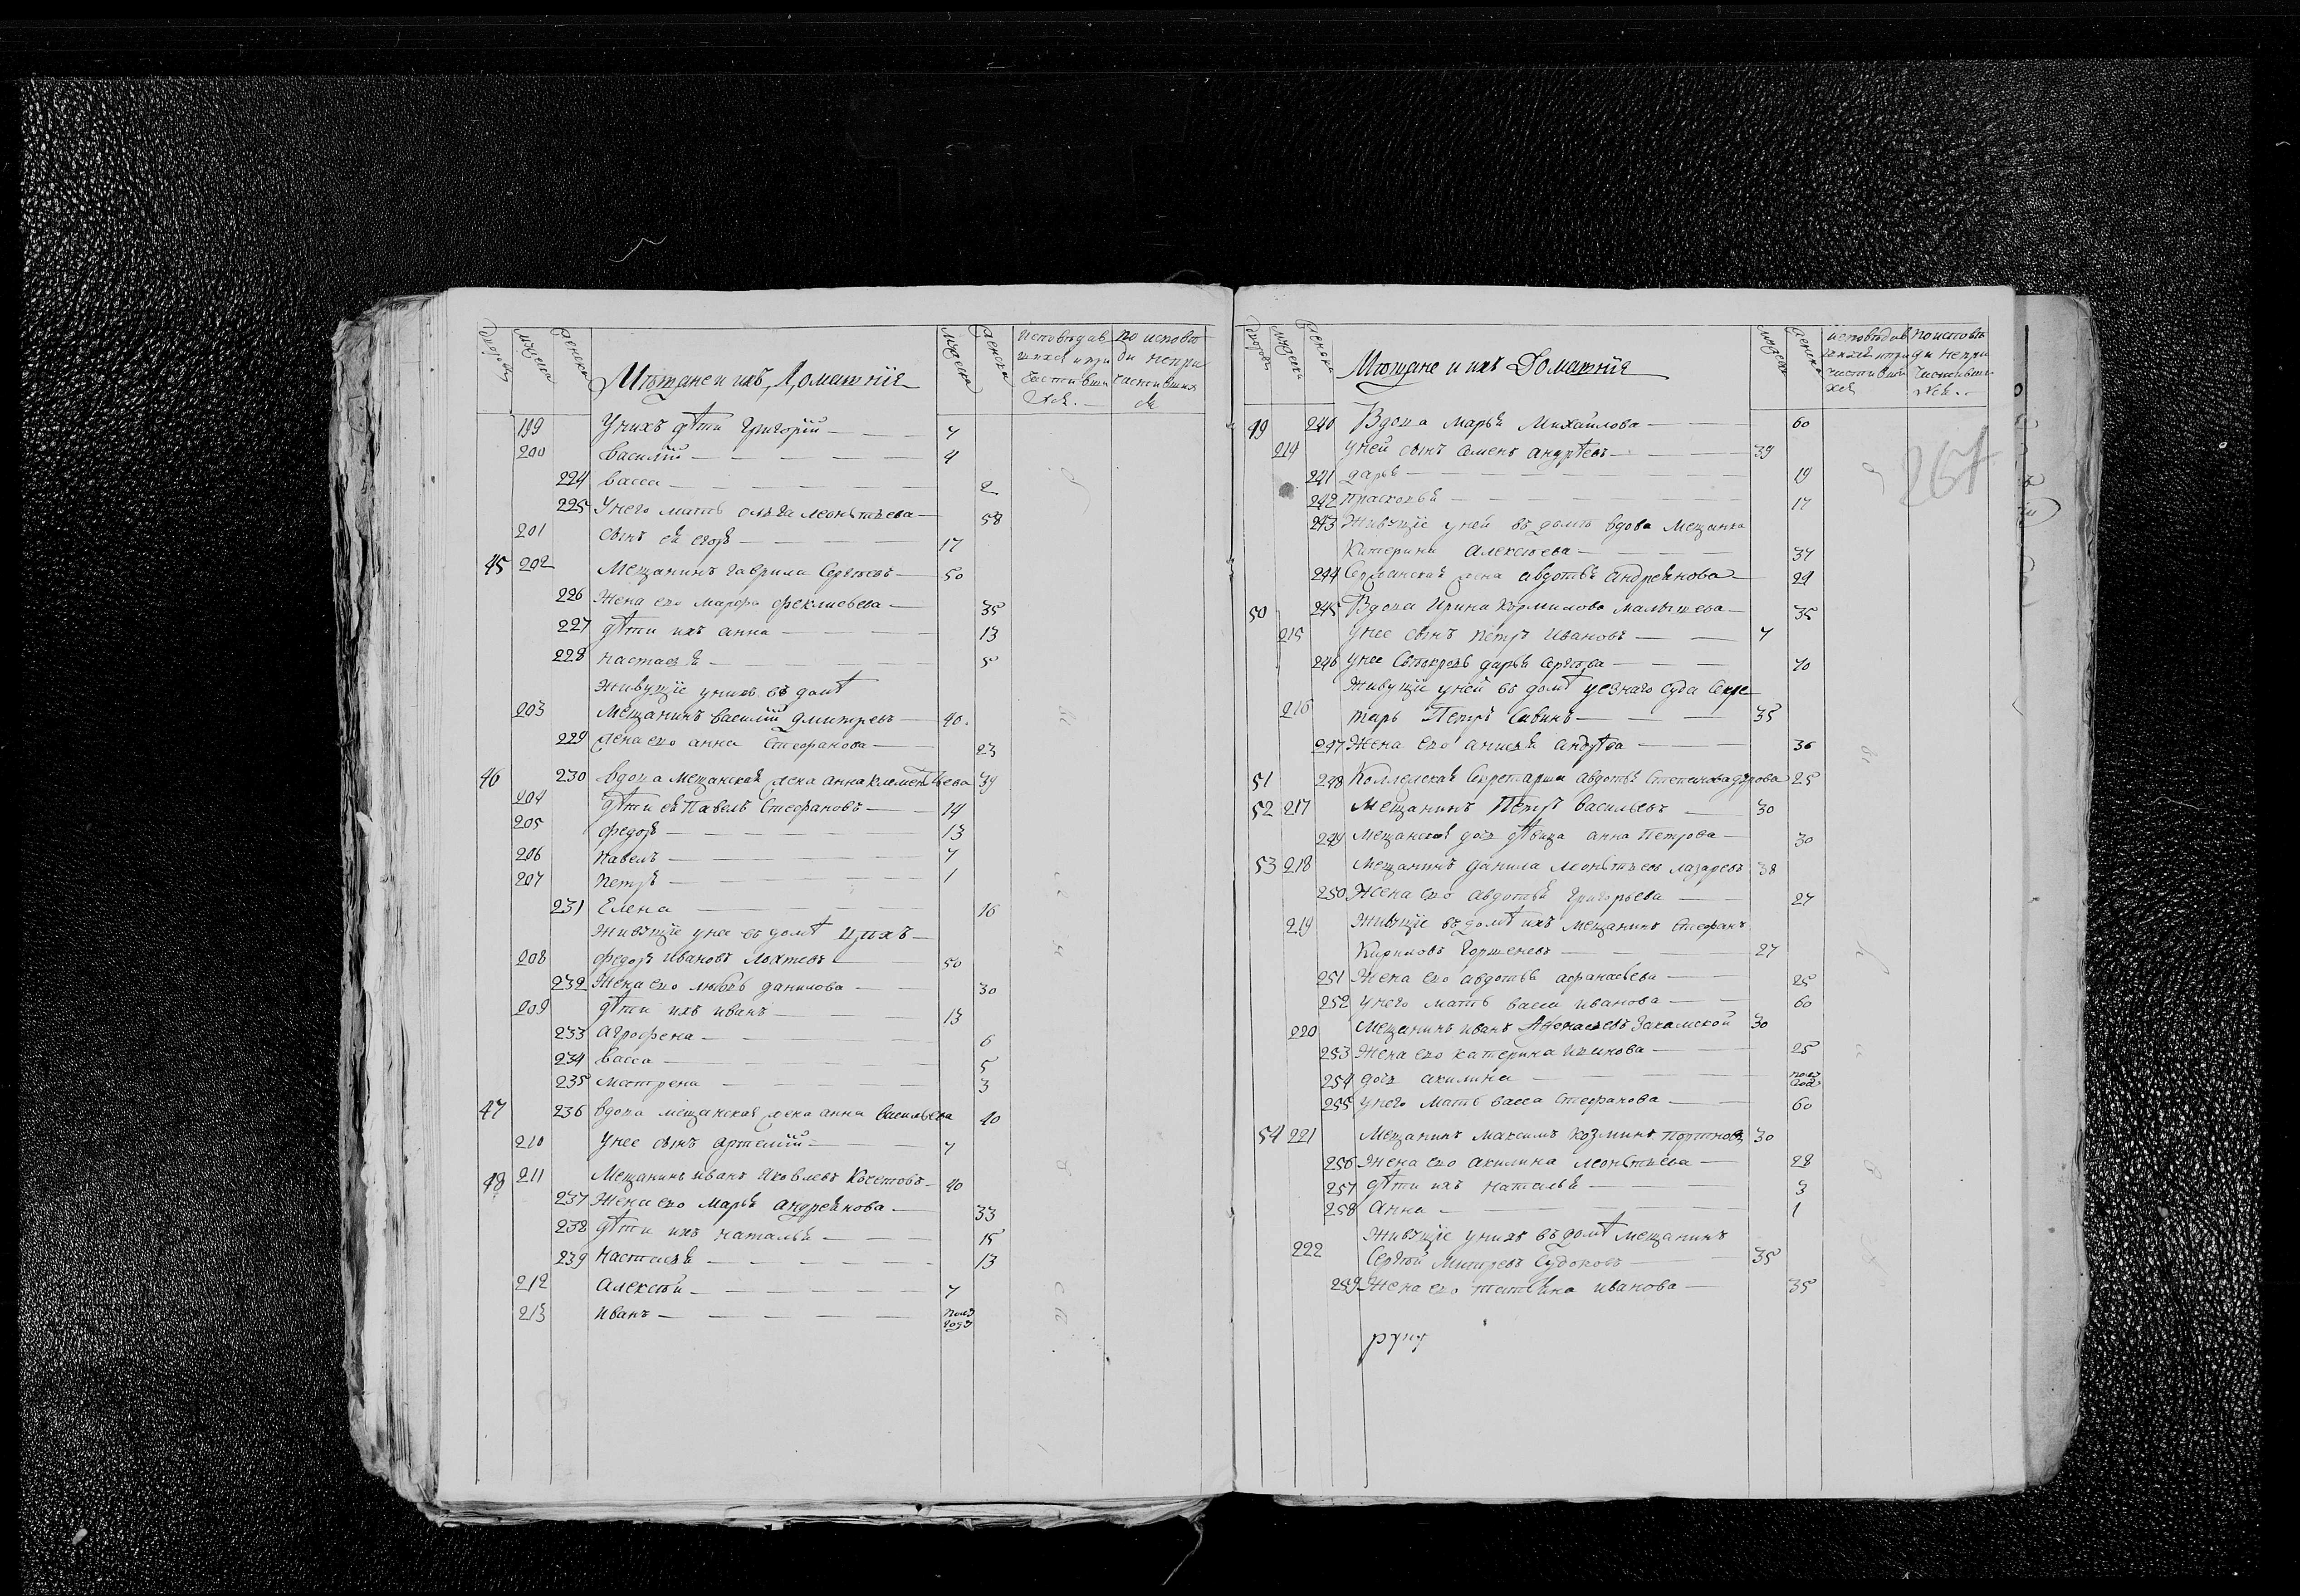 Дворовъ Мужеска Женска Мѣщане и ихъ Домашнія Мужеска Женска Исповѣдав По исповѣ
шихся и при ди непри
частивши частивших
хся. ся
199 У нихъ дѣти Григорій 7
200 Василій 4
224 васса 2
225 У него мать ольга леонтьева 58
201 сынъ ея егоръ 17
45 202 Мещанинъ гаврила Сергѣевъ 50
226 Жена его марфа феклисьева 35
227 дѣти ихъ анна 13
228 настасья 5
Живущіе у нихъ въ домѣ
203 Мещанинъ василій дмитревъ 40.
229 жена его анна Стефанова 23
46 230 вдова мещанская жена анна клементьева 39
204 дѣти ея Павелъ Стефановъ 14
205 федоръ 13
206 павелъ 7
207 петръ 1
231 Елена 16
Живущіе у нее въ домѣ
208 федоръ Ивановъ 50
232 Жена его любовь данилова 30
209 дѣти ихъ иванъ 13
233 аграфена 6
234 васса 5
235 матрена 3
47 236 вдова мещанская жена анна васильева 40
210 У нее сынъ артемій 7
48 211 Мещанинъ иванъ Яковлевъ 40
237 Жена его Марья андреянова 33
238 дѣти ихъ наталья 15
239 настасья 13
212 алексѣй 7
213 иванъ полъ
года
Дворовъ Мужеска Женска Мѣщане и ихъ Домашнія Мужеска Женска исповѣдав по исповѣ
шихся и при ди непри
частивши частивши
хся хся.
267
49 240 Вдова Марья Михайлова 60
214 у ней сынъ Семенъ андрѣевъ 39
241 дарья 19
242 прасковья 17
243 Живущіе у ней въ домѣ вдова мещанка
Катерина алексѣева 37
244 жена авдотья андреянова 29
50 245 Вдова Ирина Кормилова малышева 35
215 у нее сынъ петръ Ивановъ 7
246 у нее свекровь дарья Сергѣева 70
Живущіе у ней въ домѣ уезнаго суда Секре
216 тарь Петръ Савинъ 35
247 Жена его анисья андрѣева 36
51 248 Секретарша авдотья Степанова 25
52 217 Мещанинъ Петръ васильевъ 30
249 Мещанская дочь дѣвица анна Петрова 30
53 218 Мещанинъ данила леонтьевъ лазаревъ 38
250 Жена его авдотья григорьева 27
219 Живущіе въ домѣ ихъ мещанинъ Стефанъ
Кириловъ Горшеневъ 27
251 Жена его авдотья афанасьева 25
252 у него мать васса иванова 60
220 Мещанинъ иванъ Афонасьевъ Закамской 30
253 Жена его катерина 25
254 дочь акилина полъ
года
255 у него мать васса Стефанова 60
54 221 Мещанинъ максимъ козминъ портновъ 30
256 Жена его акилина леонтьева 28
257 дѣти ихъ наталья 3
258 Анна 1
Живущіе у нихъ въ домѣ мещанинъ
222 Сергѣй Митревъ Судоковъ 35
259 Жена его татьяна иванова 35
руку